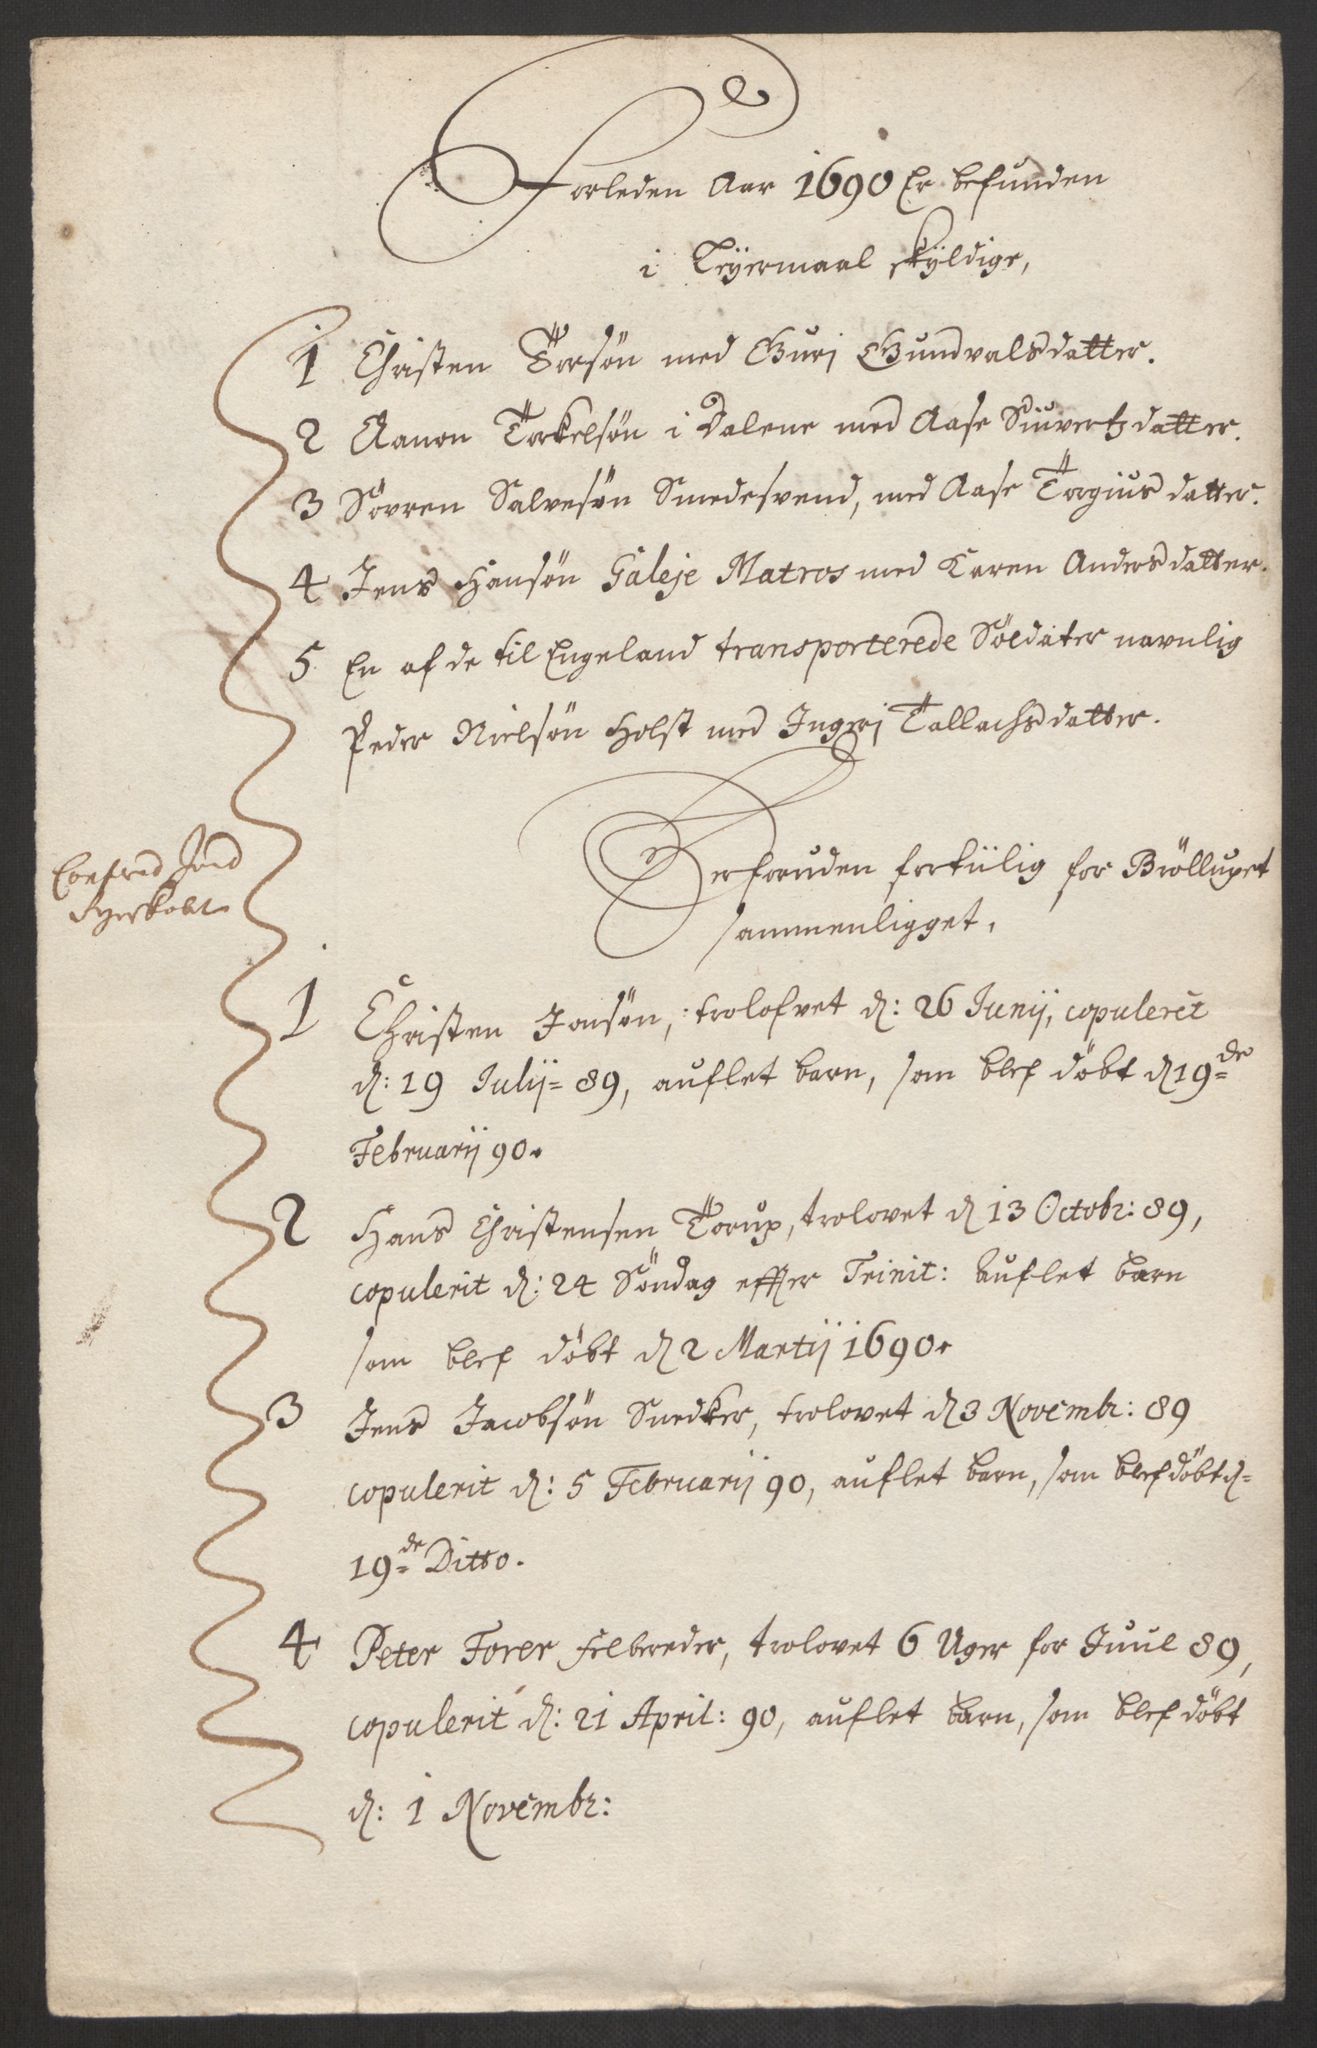 Forleden Aar 1690 Er befunden
i Leyermaal skyldige,
1 Christen Torsøn med Guri Gundvalsdatter.
2 Aanon Torkelsøn i Dalene med Aase Siuvertzdatter.
3 Søvren Salvesøn Smedesvend, med Aase Torgiusdatter.
4 Jens Hansøn Galeje Matros med Karen Andersdatter.
5 En af de til Engeland transporterede Soldater navnlig
Peder Nielsøn Holst med Ingeri Tallachsdatter.
Derforuden fortiilig for Brøllupet
sammenligget.
1 Christen Jonsøn, trolofvet d: 26 Junij, copulerit
d: 19 Julij 89, auflet barn, som blef døbt d 19de
Februarij 90.
2 Hans Christensen Torup, trolovet d 13 Octobr: 89,
copulerit d: 24 Søndag effter Trinit: Auflet barn
som blef døbt d 2 Martij 1690.
3 Jens Jacobsøn Snedker, trolovet d 3 Novembr: 89
copulerit d: 5 Februarij 90, auflet barn, som blef døbt d=
19de Ditto.
4 Peter Forer Felbereder, trolovet 6 Uger for Juul 89,
copulerit d: 21 April: 90, auflet barn, som blef døbt
d: 1 Novembr: